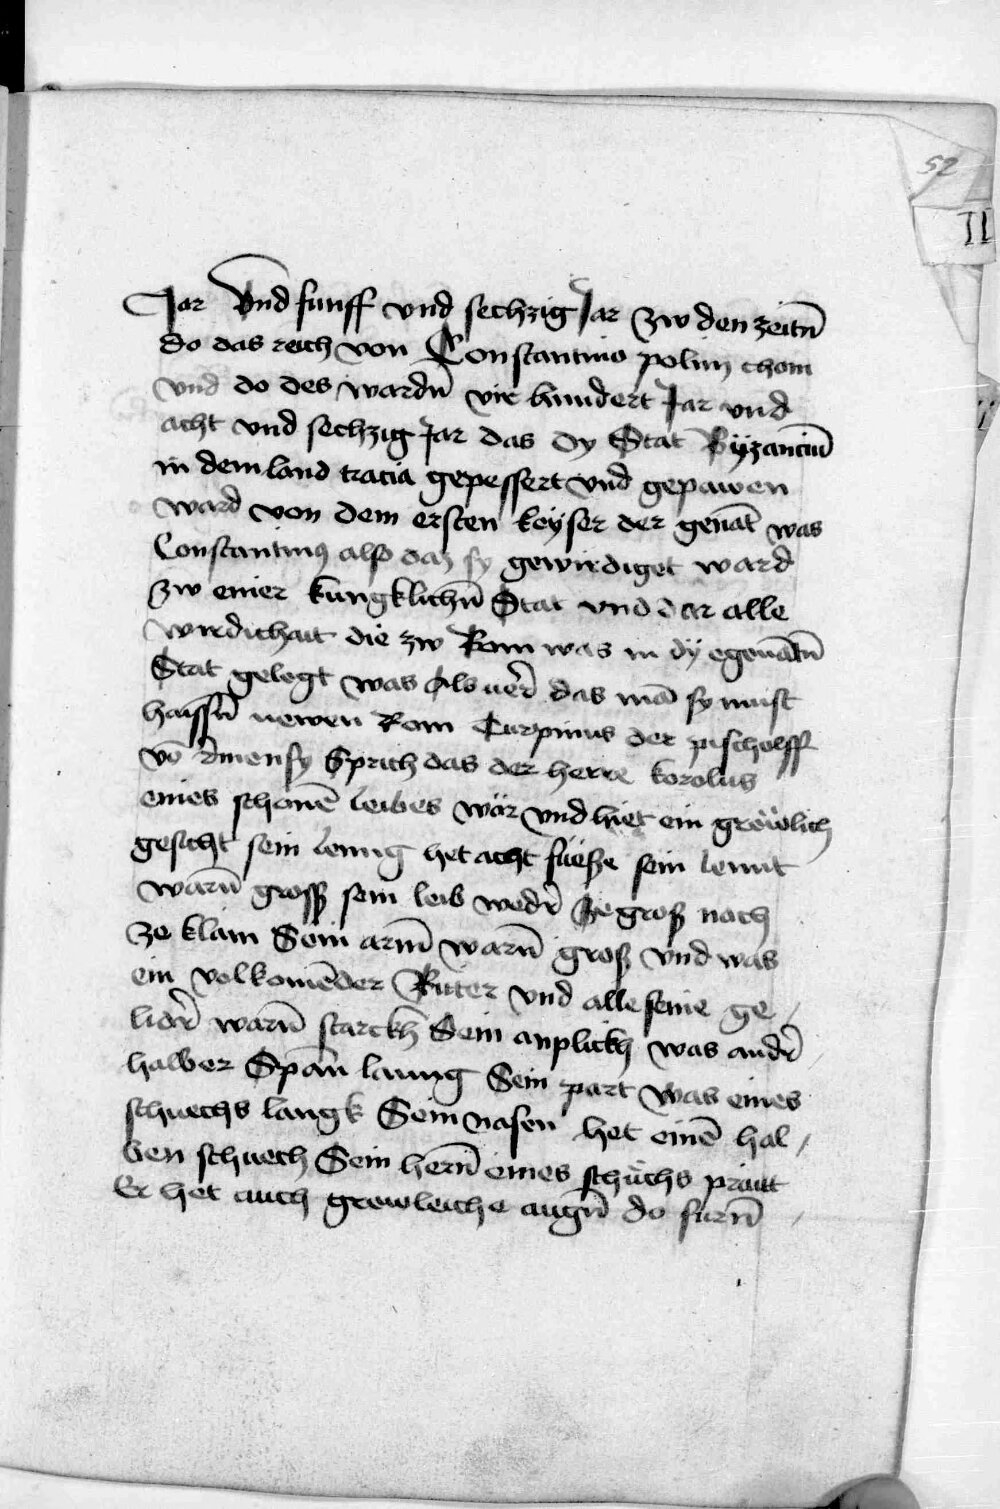 52
II
Jar Vnd funff vnd sechzig Jar zw den zeitn̄
do das reich von Constantino polim chom
vnd do des wardn̄ vir hundert Jar vnd
acht vnd sechzig Jar das dy Stat Byzanciū
in dem land tracia gepessert vnd gepawen
ward von dem ersten keyser der genāt was
Constantinus also daz sy gewirdiget ward
zw einer kungklichn̄ Stat vnd dar alle
wirdichait die zw Rom was in dy egenātn̄
Stat gelegt was Als uer̄ das mā sy must
haissn̄ newen Rom Turpinus der pischolff
vō Sprich das der herre korolus
eines schonē leibes wär vnd hiet ein grewlich
gesicht sein leng het acht fueße sein lennt
warn̄ grosß sem leib wedr̄ ze groß noch
ze klain Sein arm̄ warn̄ groß vnd was
ein volkomēder Ritter vnd alle seine ge
lidr̄ warn̄ starckh Sein anplickh was andr̄
halber Span̄ lanng Sein part was eines
schuechs langk Sein nasen het einē hal
ben schuech Sein hern̄ eines schuchs prait
Er het auch grewleiche augn̄ do furn̄